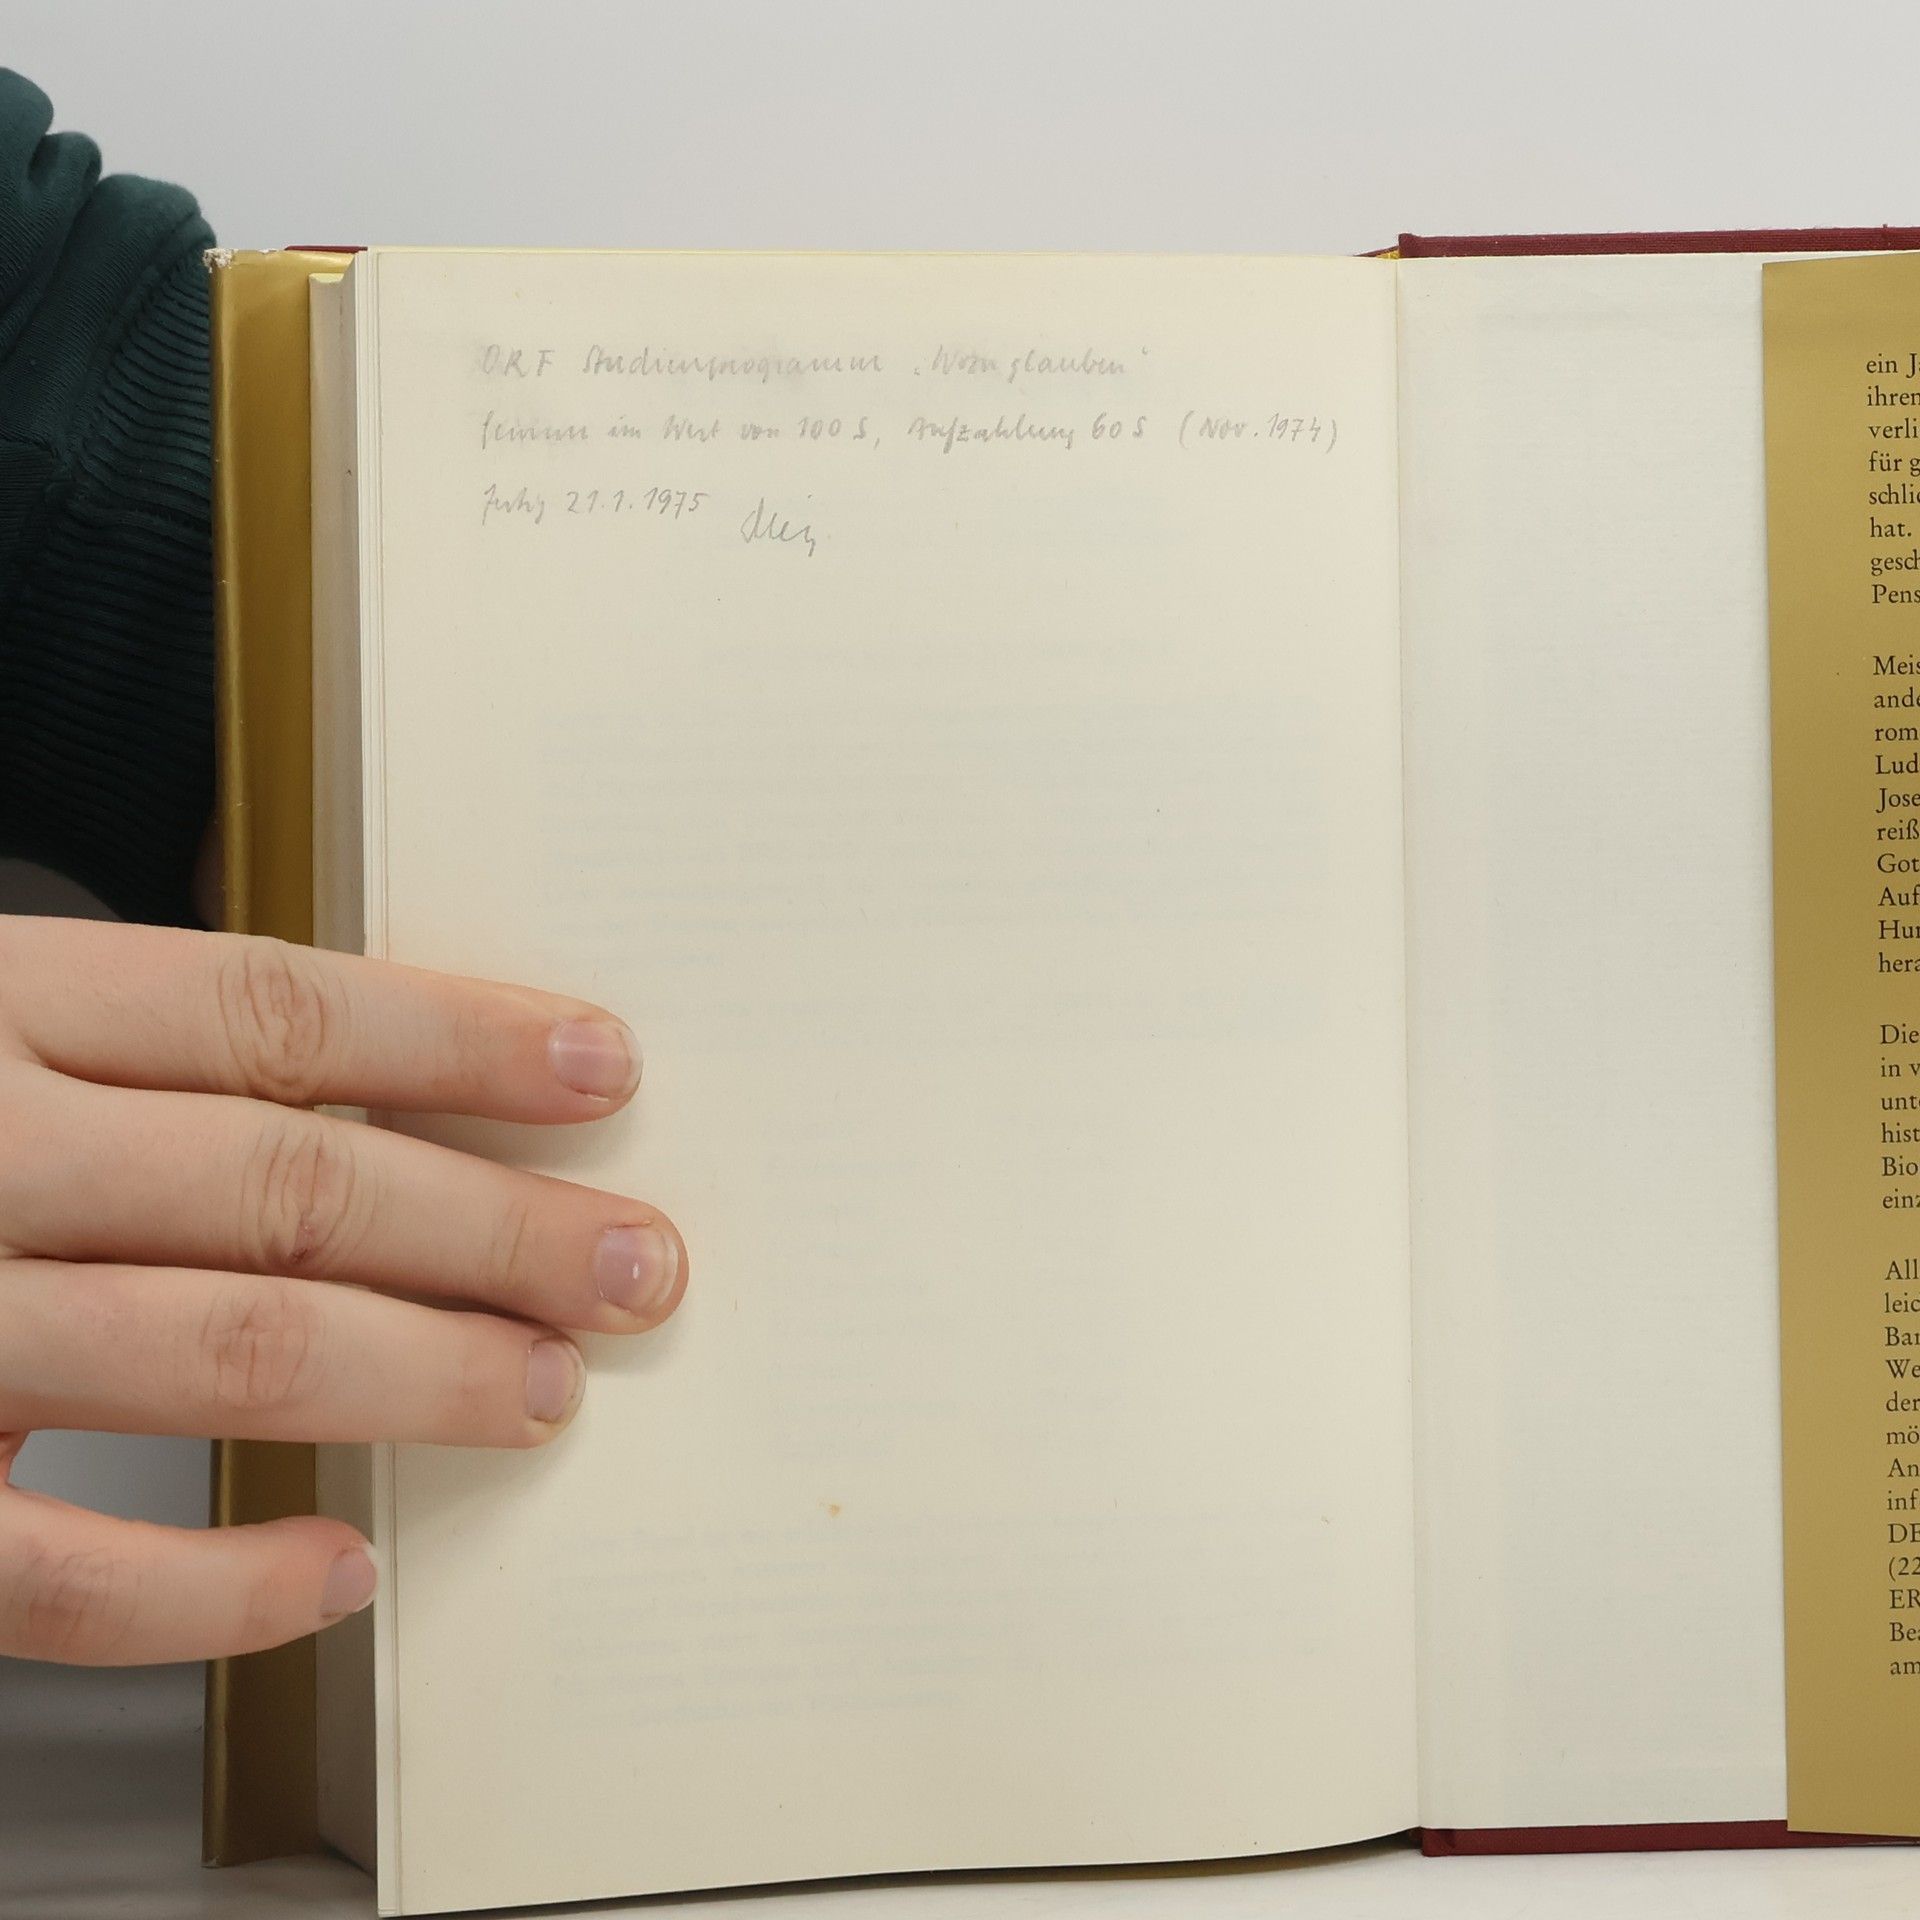 ORF Studienprogramm „Wozu glauben“
Gewinn im Wert von 100 S, Aufzahlung 60 S (Nov. 1974)
21.1.1975
ein J
ihren
verli
für g
schli
hat.
gesch
Pens
Meis
ande
rom
Lud
Jose
reiß
Got
Auf
Hu
hera
Die
in v
unte
hist
Bio
einz
All
leic
Ban
We
der
mö
An
inf
DE
(22
ER
Bea
am